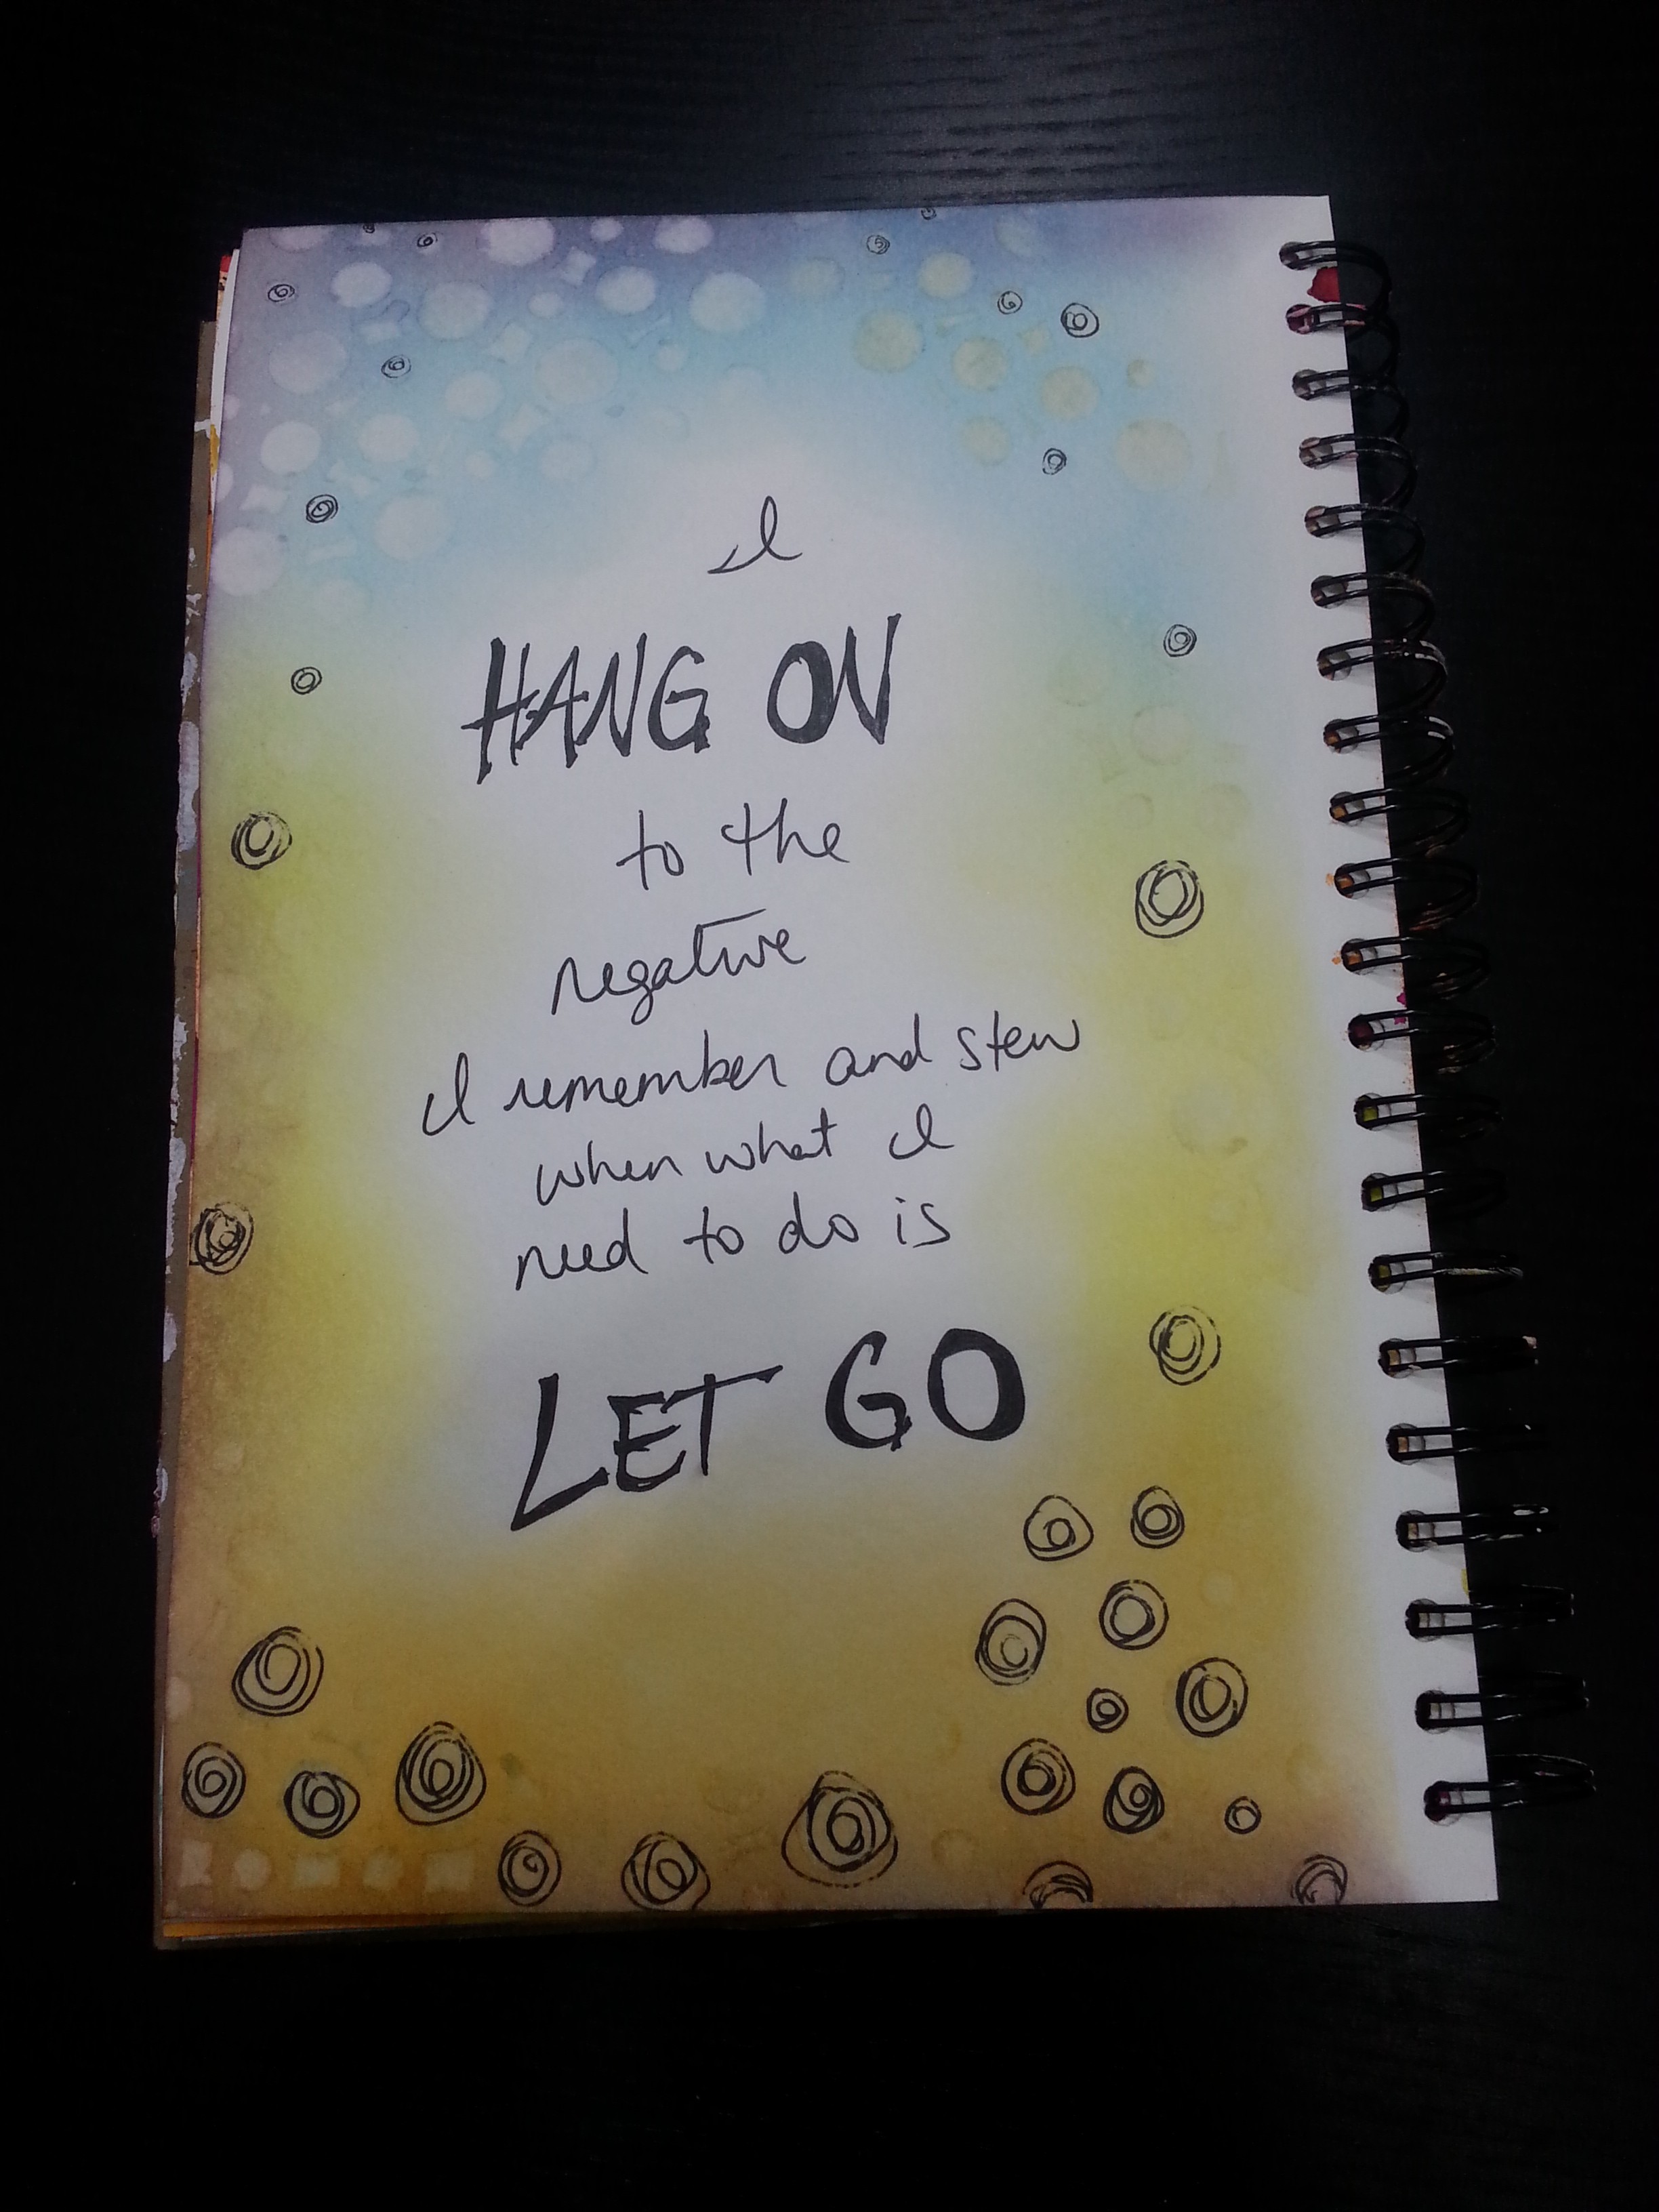 I
HANG ON
to the
negative
I remember and stew
when what I
need to do is
LET GO